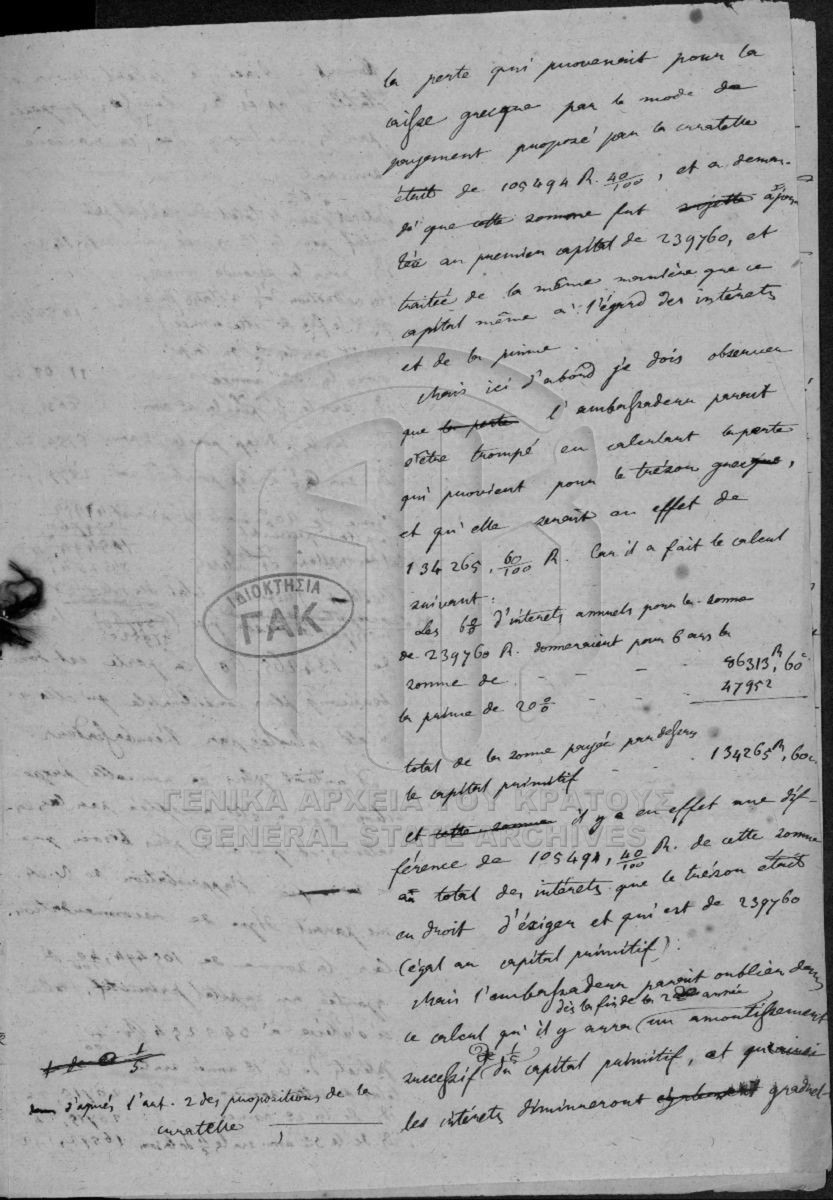 la perte qui provenait pour la
caisse grecque par le mode de
payement proposé par la curatelle
était de 105494 R. 40/100, et a deman-
dé que cette somme fut sujette ajou
tée au premier capital de 239760, et
traitée de la même manière que ce
capital même à l'égard des intérêts
et de la prime.
Mais ici d'abord je dois observer
que la perte l'ambassadeur parait
s'être trompé en calculant la perte
qui provient pour le trésor grecque,
et qu'elle serait en effet de
134265, 60/100 R. Car il a fait le calcul
suivant:
Les 6 % d'intérêts annuels pour la somme
de 239760 R. donneraient pour 6 ans la
somme de - - - - 86313 R, 60 c
la prime de 20 % - - - 47952
total de la somme payée par dessus
le capital primitif - - - 134265 R, 60 c.
et cette somme il y a en effet une dif-
férence de 105494, 40/100 R. de cette somme
au total des intérêts que le trésor était
en droit d'éxiger et qui est de 239760
(égal au capital primitif).
Mais l'ambassadeur parait oublier dans
dès la fin de la 2de année
ce calcul qu'il y aura un amortissement
de 1/5
successif du capital primitif, et qu'ainsi
les intérêts diminueront graduel-
1 de 1/5
d'après l'art. 2 des propositions de la
curatelle
ΙΔΙΟΚΤΗΣΙΑ
ΓΑΚ
ΓΕΝΙΚΑ ΑΡΧΕΙΑ ΤΟΥ ΚΡΑΤΟΥΣ
GENERAL STATE ARCHIVES